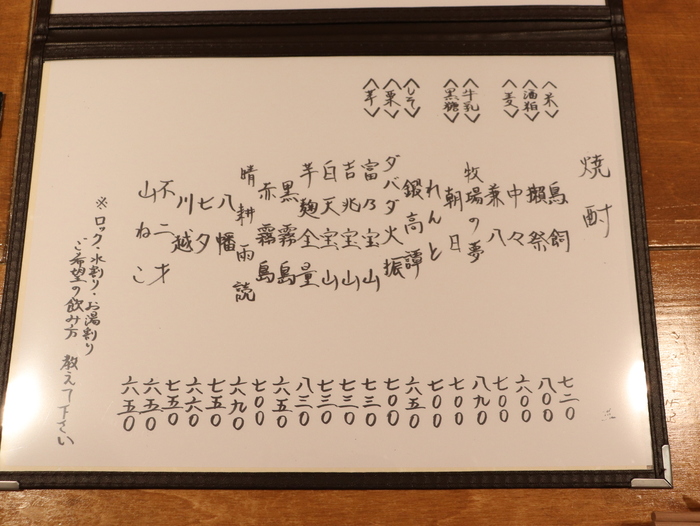 焼酎
〈米〉鳥飼 七二〇
〈酒粕〉獺祭 八〇〇
〈麦〉中々 六〇〇
兼八 七〇〇
〈牛乳〉牧場の夢 八九〇
〈黒糖〉朝日 七〇〇
れんと 七〇〇
〈しそ〉鍛高譚 六五〇
〈栗〉ダバダ火振 七〇〇
〈芋〉富乃宝山 七三〇
吉兆宝山 七三〇
白天宝山 七三〇
芋麹全量 八三〇
黒霧島 六五〇
赤霧島 七〇〇
晴耕雨読 六九〇
八幡 七五〇
七夕 六六〇
川越 七五〇
不二才 六五〇
山ねこ 六五〇
※ロック・水割り・お湯割り
ご希望の飲み方 教えて下さい